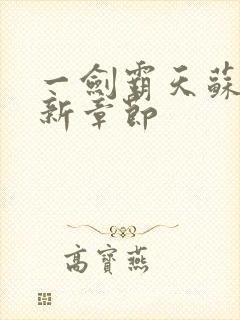 一劍霸天蘇
新章節
高寶燕